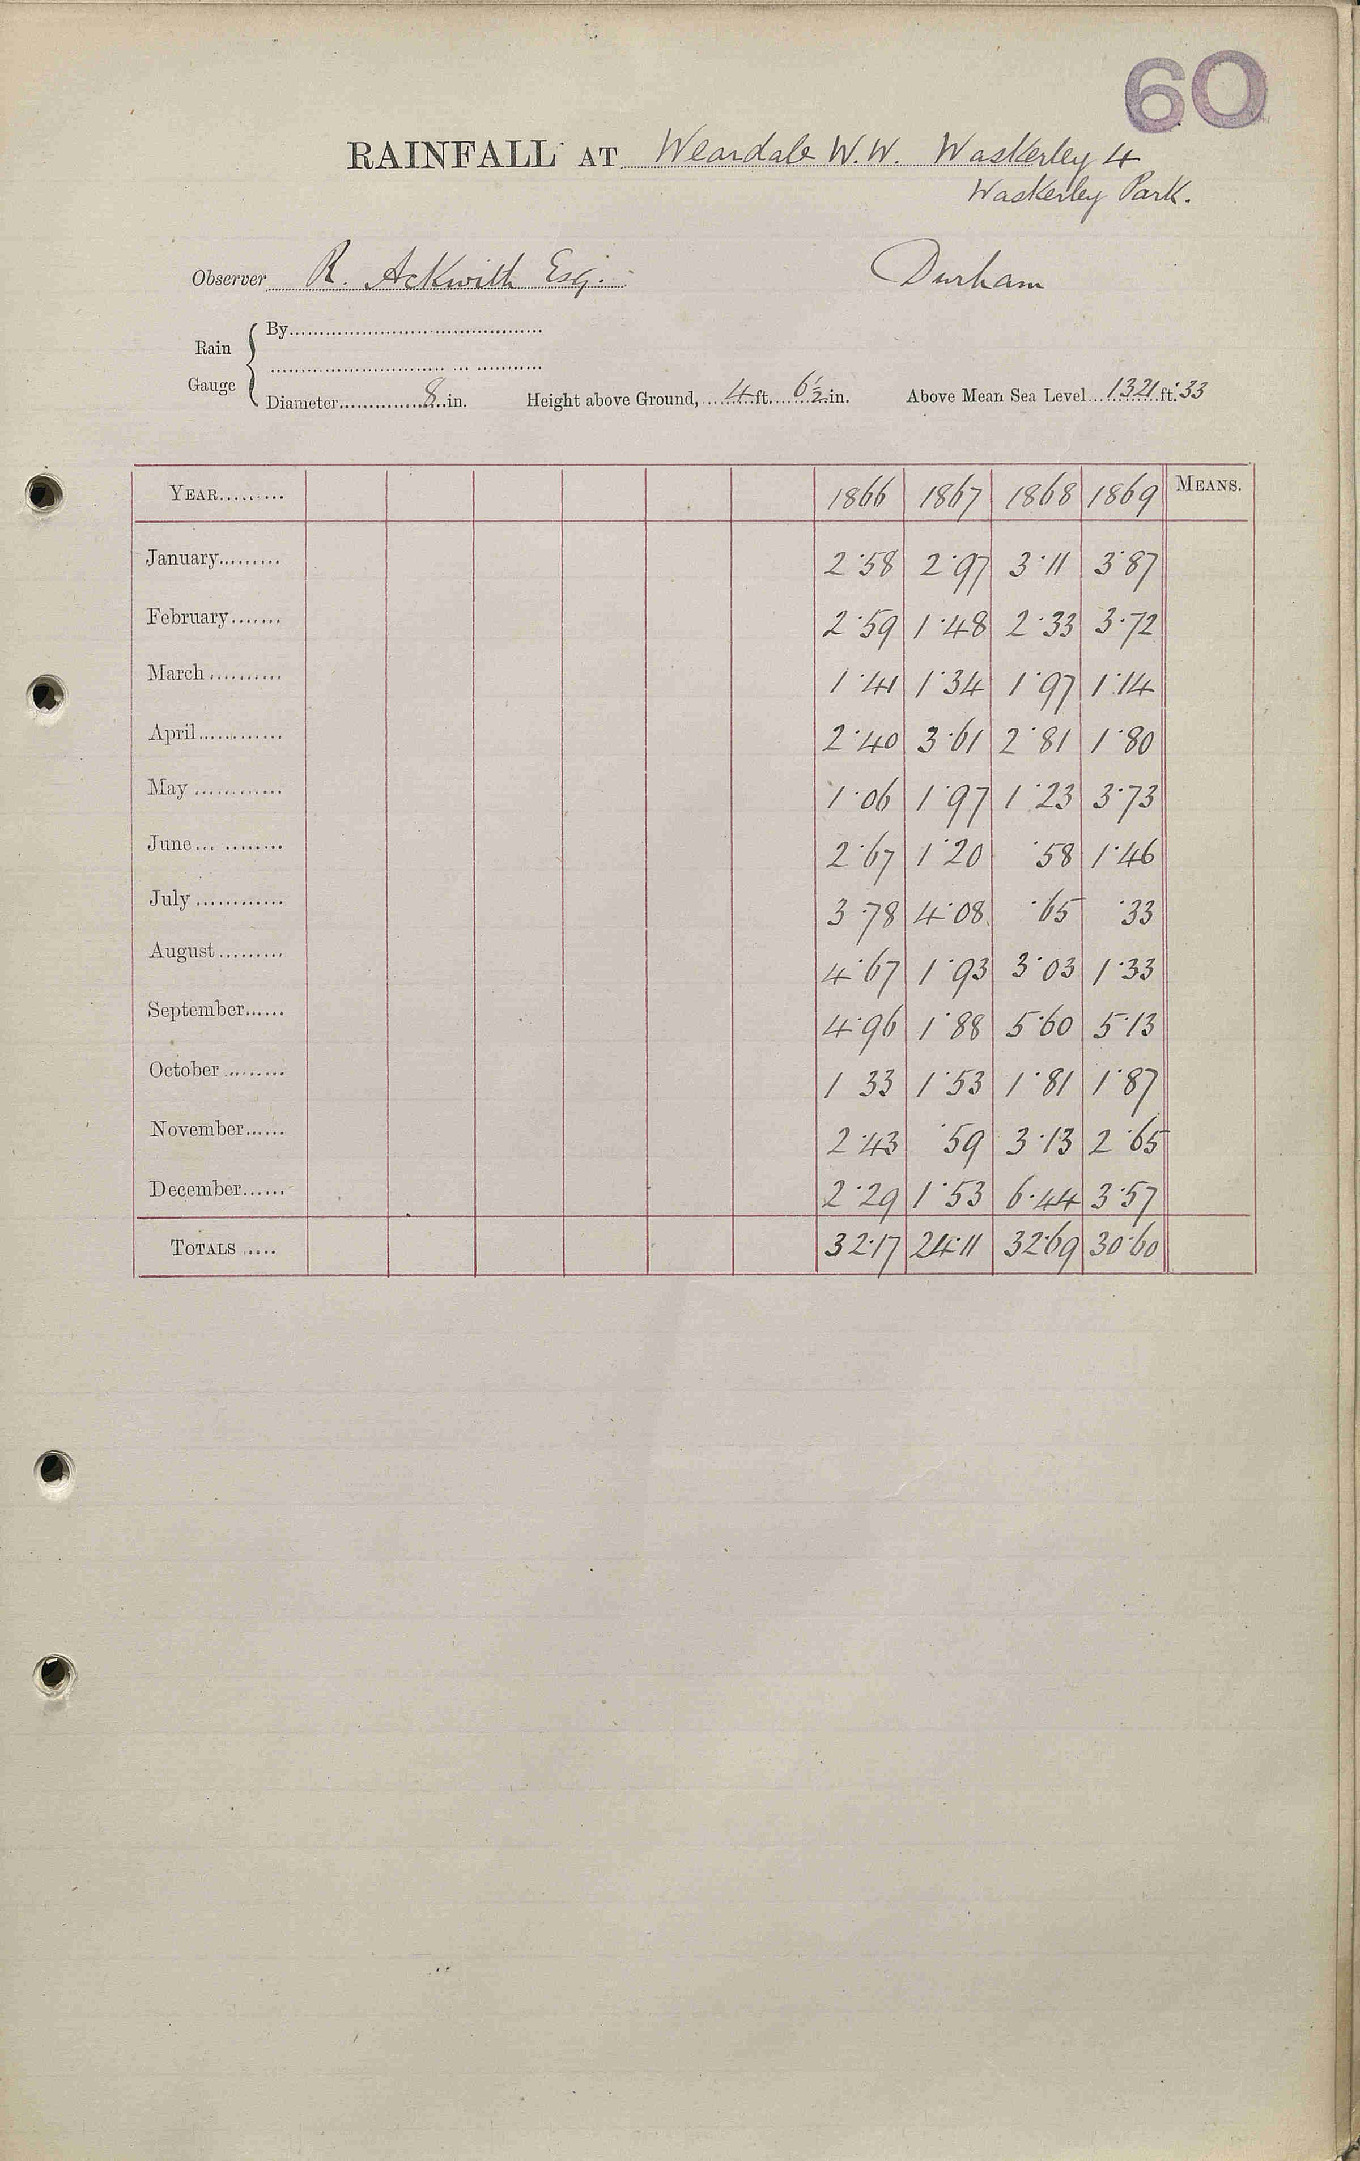 60
RAINFALL AT Weardale W.W. Waskerley 4
Waskerley Park.
Observer R. Ackwith Esq. Durham
Rain Gauge { By
Diameter 8 in. Height above Ground, 4 ft. 6½ in. Above Mean Sea Level 1321 ft. 33
YEAR 1866 1867 1868 1869 MEANS.
January 2.58 2.97 3.11 3.87
February 2.59 1.48 2.33 3.72
March 1.41 1.34 1.97 1.14
April 2.40 3.61 2.81 1.80
May 1.06 1.97 1.23 3.73
June 2.67 1.20 .58 1.46
July 3.78 4.08 .65 .33
August 4.67 1.93 3.03 1.33
September 4.96 1.88 5.60 5.13
October 1 33 1.53 1.81 1.87
November 2.43 .59 3.13 2.65
December 2.29 1.53 6.44 3.57
TOTALS 32.17 24.11 32.69 30.60